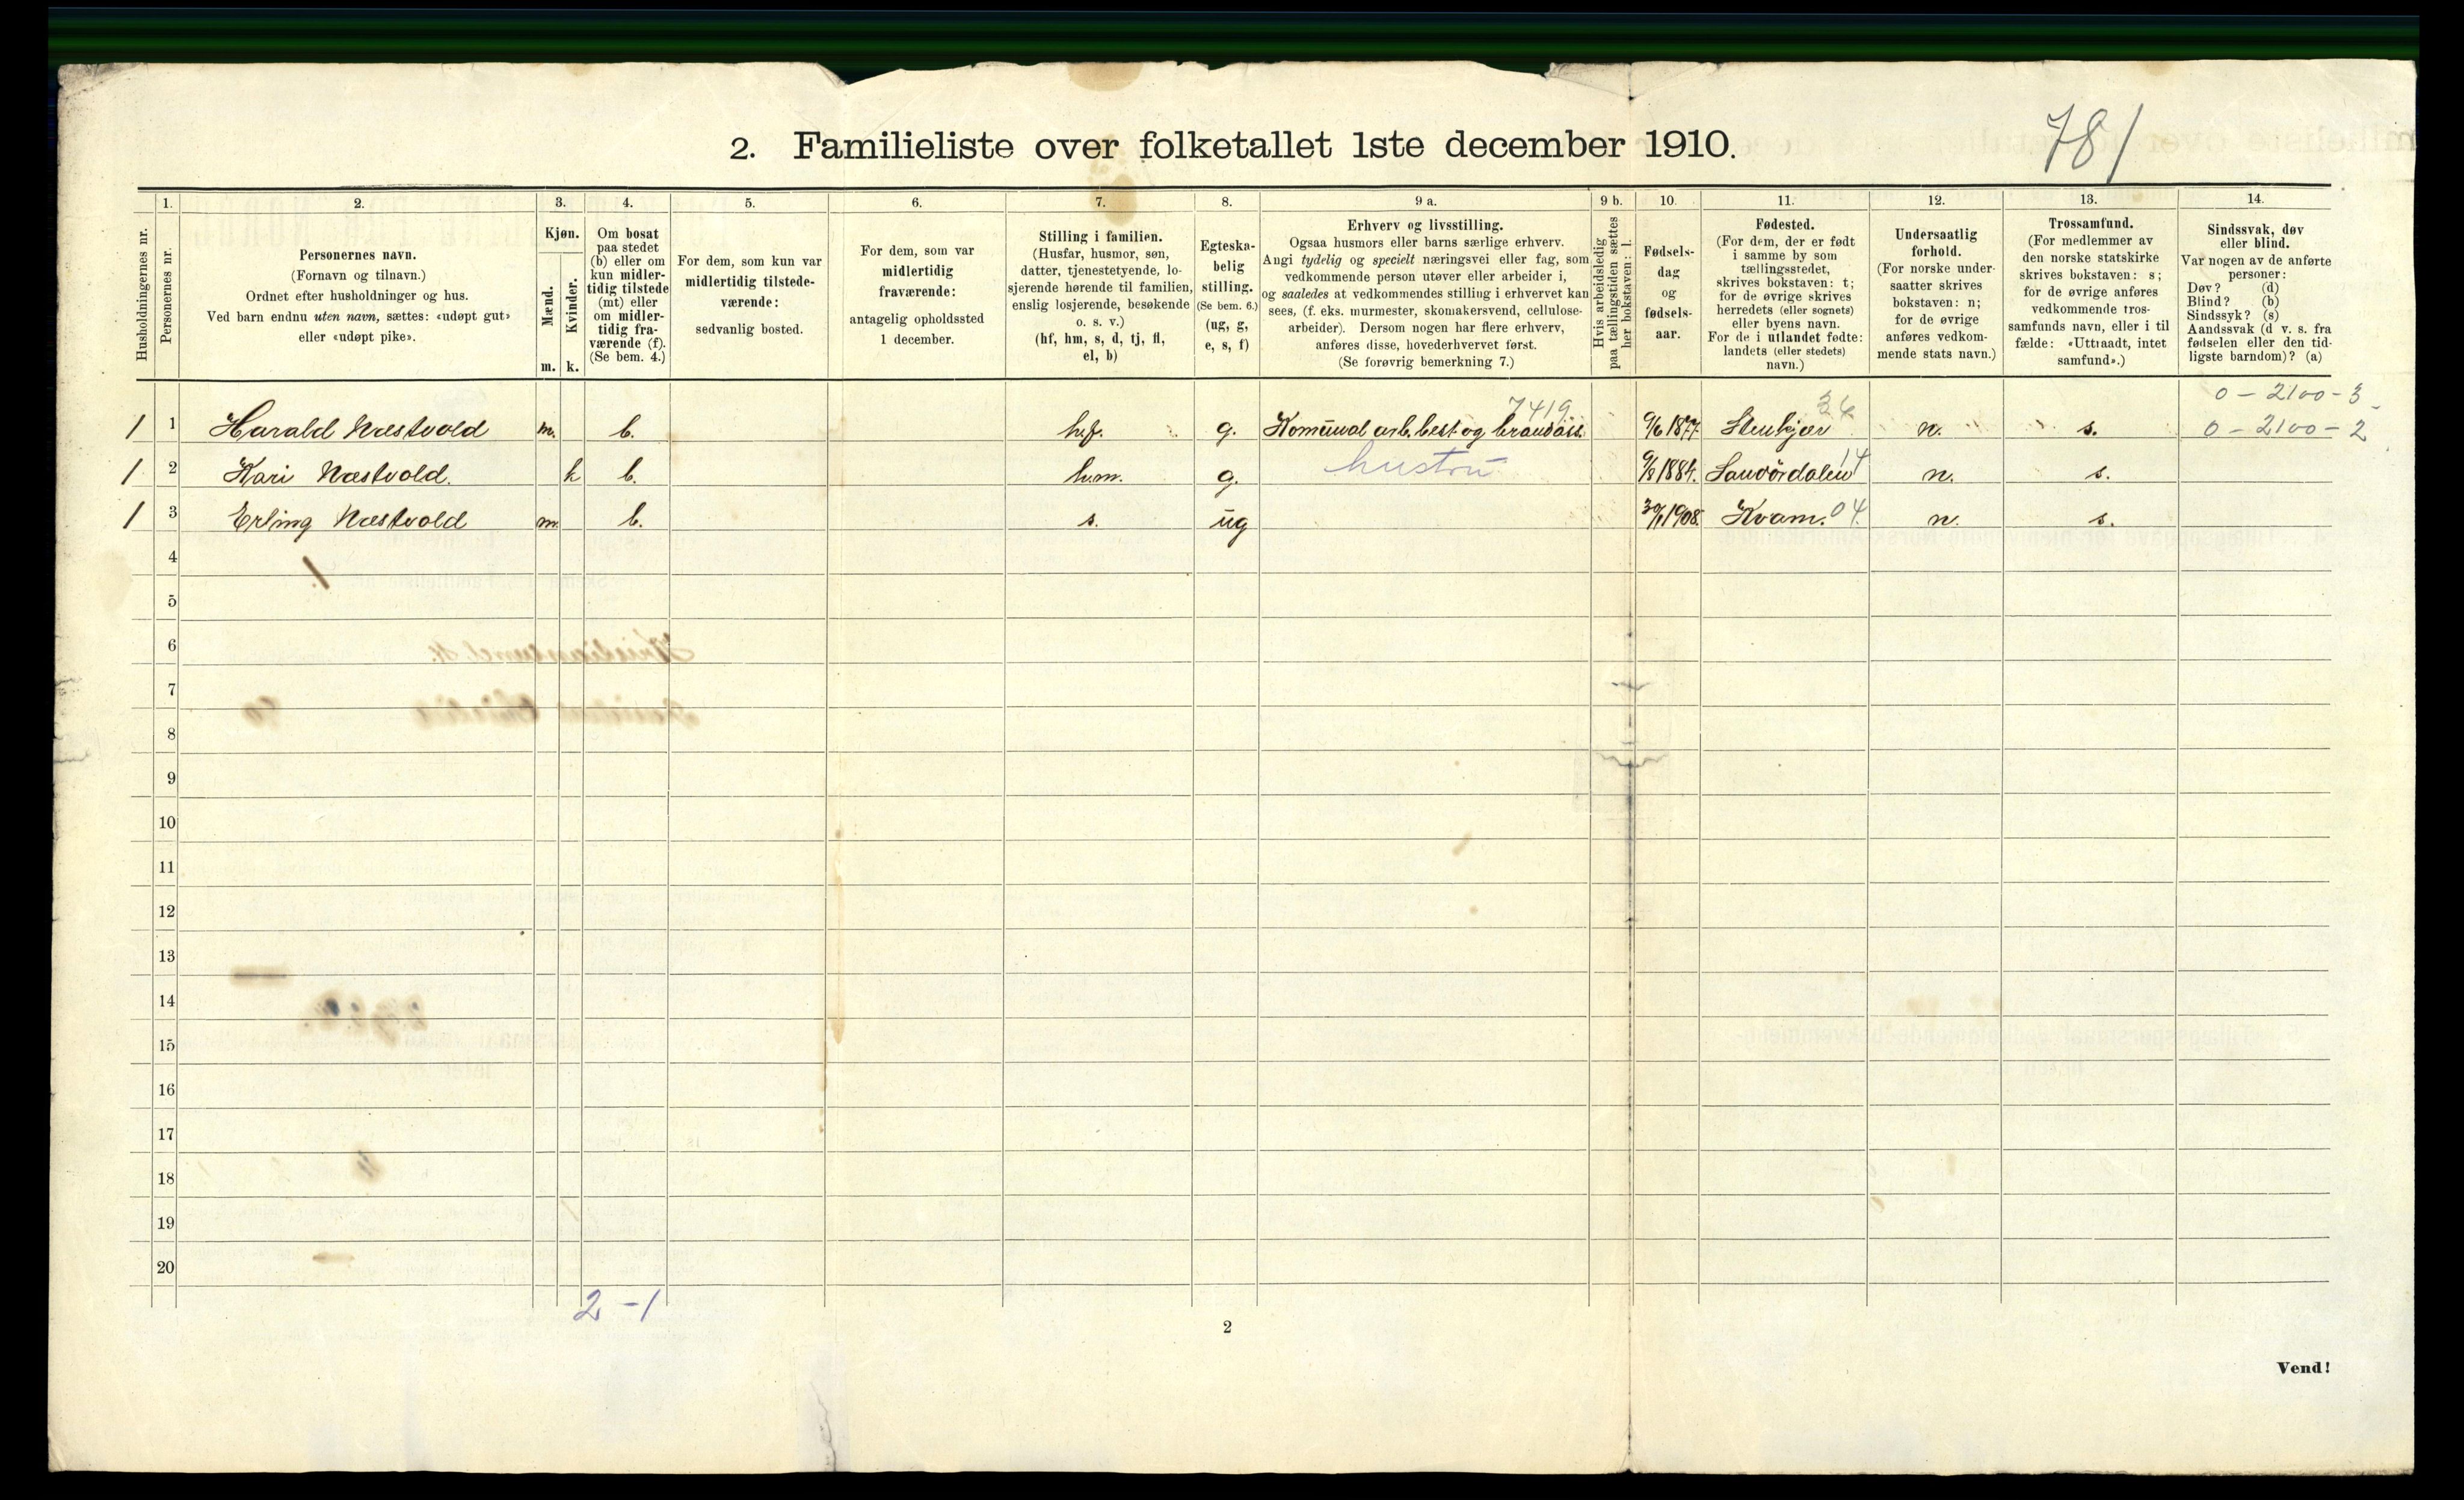 2. Familieliste over folketallet 1ste december 1910.
781
Husholdningernes nr.
1.
Personernes nr.
2.
Personernes navn.
(Fornavn og tilnavn.)
Ordnet efter husholdninger og hus.
Ved barn endnu uten navn, sættes: «udøpt gut»
eller «udøpt pike».
3.
Kjøn.
Mænd.
m.
Kvinder.
k.
4.
Om bosat
paa stedet
(b) eller om
kun midler-
tidig tilstede
(mt) eller
om midler-
tidig fra-
værende (f).
(Se bem. 4.)
5.
For dem, som kun var
midlertidig tilstede-
værende:
sedvanlig bosted.
6.
For dem, som var
midlertidig
fraværende:
antagelig opholdssted
1 december.
7.
Stilling i familien.
(Husfar, husmor, søn,
datter, tjenestetyende, lo-
sjerende hørende til familien,
enslig losjerende, besøkende
o. s. v.)
(hf, hm, s, d, tj, fl,
el, b)
8.
Egteska-
belig
stilling.
(Se bem. 6.)
(ug, g,
e, s, f)
9 a.
Erhverv og livsstilling.
Ogsaa husmors eller barns særlige erhverv.
Angi tydelig og specielt næringsvei eller fag, som
vedkommende person utøver eller arbeider i,
og saaledes at vedkommendes stilling i erhvervet kan
sees, (f. eks. murmester, skomakersvend, cellulose-
arbeider). Dersom nogen har flere erhverv,
anføres disse, hovederhvervet først.
(Se forøvrig bemerkning 7.)
9 b.
Hvis arbeidsledig
paa tællingstiden sættes
her bokstaven: l.
10.
Fødsels-
dag
og
fødsels-
aar.
11.
Fødested.
(For dem, der er født
i samme by som
tællingsstedet,
skrives bokstaven: t;
for de øvrige skrives
herredets (eller sognets)
eller byens navn.
For de i utlandet fødte:
landets (eller stedets)
navn.)
12.
Undersaatlig
forhold.
(For norske under-
saatter skrives
bokstaven: n;
for de øvrige
anføres vedkom-
mende stats navn.)
13.
Trossamfund.
(For medlemmer av
den norske statskirke
skrives bokstaven: s;
for de øvrige anføres
vedkommende tros-
samfunds navn, eller i til
fælde: «Uttraadt, intet
samfund».)
14.
Sindssvak, døv
eller blind.
Var nogen av de anførte
personer:
Døv? (d)
Blind? (b)
Sindssyk? (s)
Aandssvak (d v. s. fra
fødselen eller den tid-
ligste barndom)? (a)
7419 36 0 - 2100 - 3
1 1 Harald Næstvold m. b. h.f. g. Komunal arb. best. og brandass. 9/6 1877. Stenkjær n. s. 0 - 2100 - 2
1 2 Kari Næstvold. k b. h.m. g. hustru 9/8 1884. Sandördalen 14 n. s.
1 3 Erling Næstvold m. b. s. ug 30/1 1908. Kvam. 04 n. s.
4
5
6
7
8
9
10
11
12
13
14
15
16
17
18
19
20
2 - 1
2
Vend!